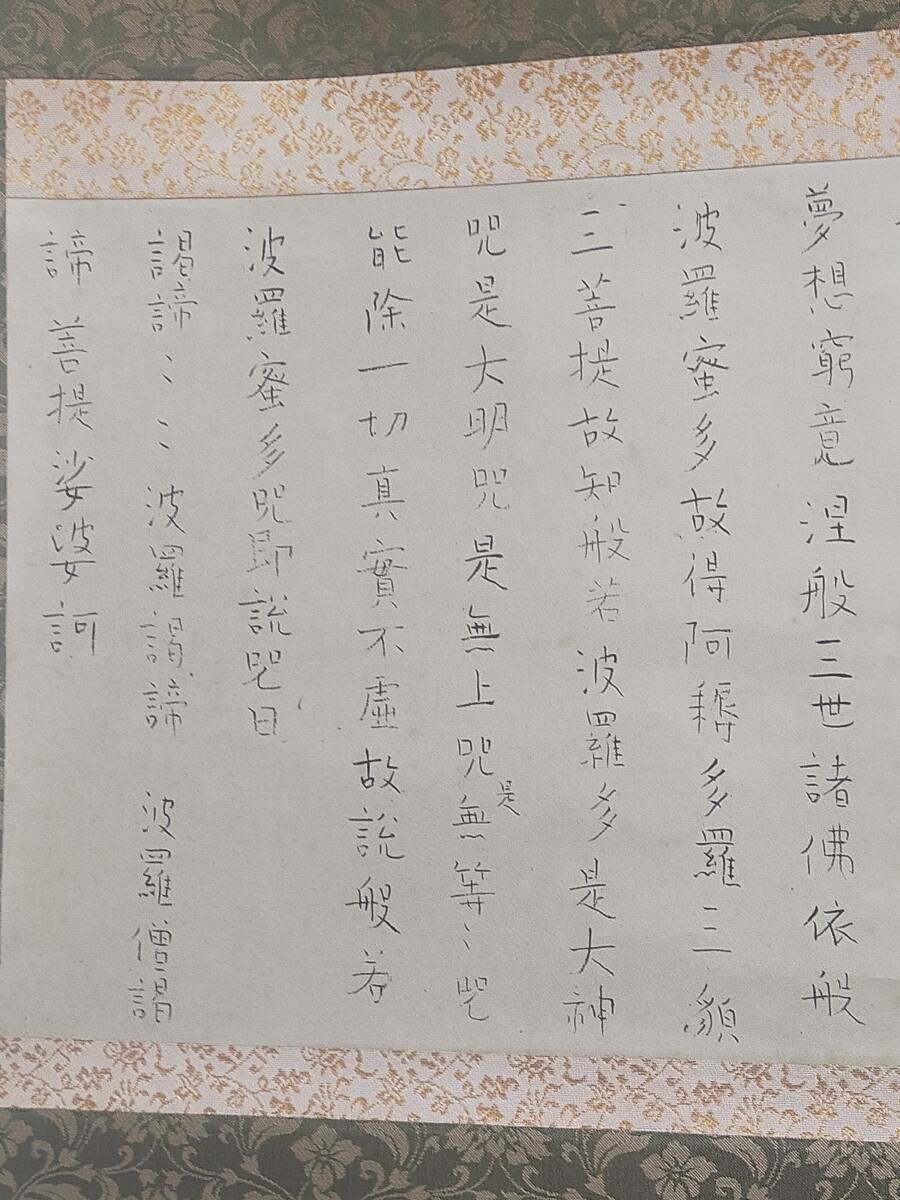 夢想窮竟涅般三世諸佛依般
波羅蜜多故得阿耨多羅三藐
三菩提故知般若波羅多是大神
咒是大明咒是無上咒是無等〻咒
能除一切真實不虛故說般若
波羅蜜多咒即說咒曰
謁諦〻〻波羅謁諦 波羅僧謁
諦 菩提娑婆訶